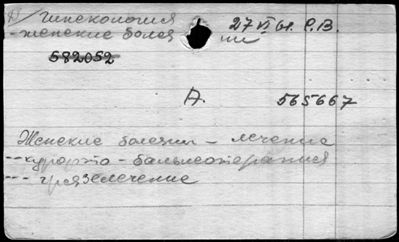 А/ Гинекология 27 VI 61. Р.В.
- женские болез ни
582052
А. 565667
Женские болезни - лечение
-- курорто - бальнеотерапия
--- грязелечение